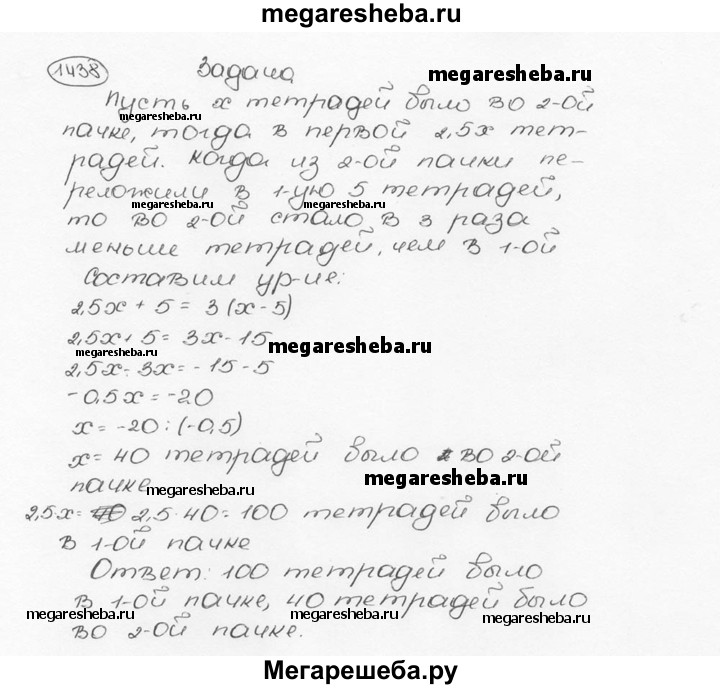 megaresheba.ru
1438 Задача
megaresheba.ru
Пусть x тетрадей было во 2-ой
megaresheba.ru
пачке, тогда в первой 2,5x тет-
радей. Когда из 2-ой пачки пе-
реложили в 1-ую 5 тетрадей,
megaresheba.ru megaresheba.ru
то во 2-ой стало в 3 раза
меньше тетрадей, чем в 1-ой
Составим ур-ие:
2,5x + 5 = 3(x - 5)
2,5x + 5 = 3x - 15
megaresheba.ru megaresheba.ru
2,5x - 3x = -15 - 5
-0,5x = -20
x = -20 : (-0,5)
x = 40 тетрадей было во 2-ой
пачке
megaresheba.ru megaresheba.ru
2,5x = 2,5·40 = 100 тетрадей было
в 1-ой пачке
Ответ: 100 тетрадей было
в 1-ой пачке, 40 тетрадей было
megaresheba.ru megaresheba.ru megaresheba.ru
во 2-ой пачке.
Мегарешеба.ру